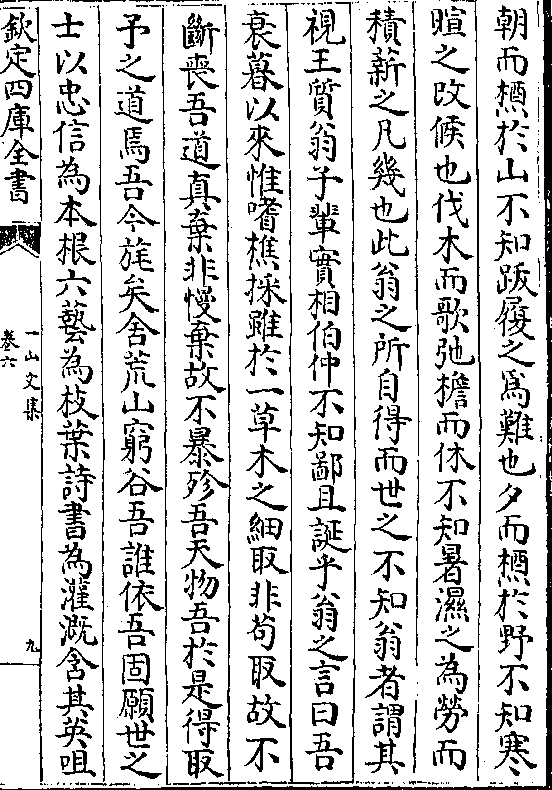 朝而樵於山不知跋履之為難也夕而樵於野不知寒
暄之改候也伐木而歌弛檐而休不知暑濕之為勞而
積薪之凡幾也此翁之所自得而世之不知翁者謂其
視王質翁子輩實相伯仲不知鄙且誕乎翁之言曰吾
衰暮以來惟嗜樵採雖於一草木之細取非苟取故不
斷喪吾道真棄非慢棄故不暴殄吾天物吾於是得取
予之道焉吾今旄矣舍荒山窮谷吾誰依吾固願世之
士以忠信為本根六藝為枝葉詩書為灌溉含其英咀
欽定四庫全書
一山文集
卷六
九